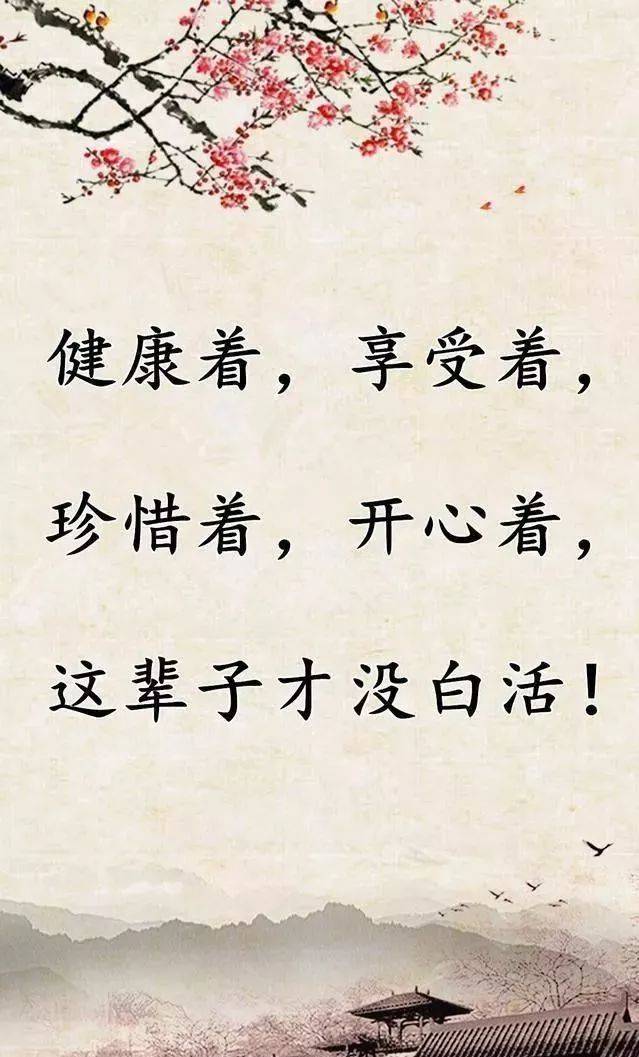 健康着，享受着，
珍惜着，开心着，
这辈子才没白活！